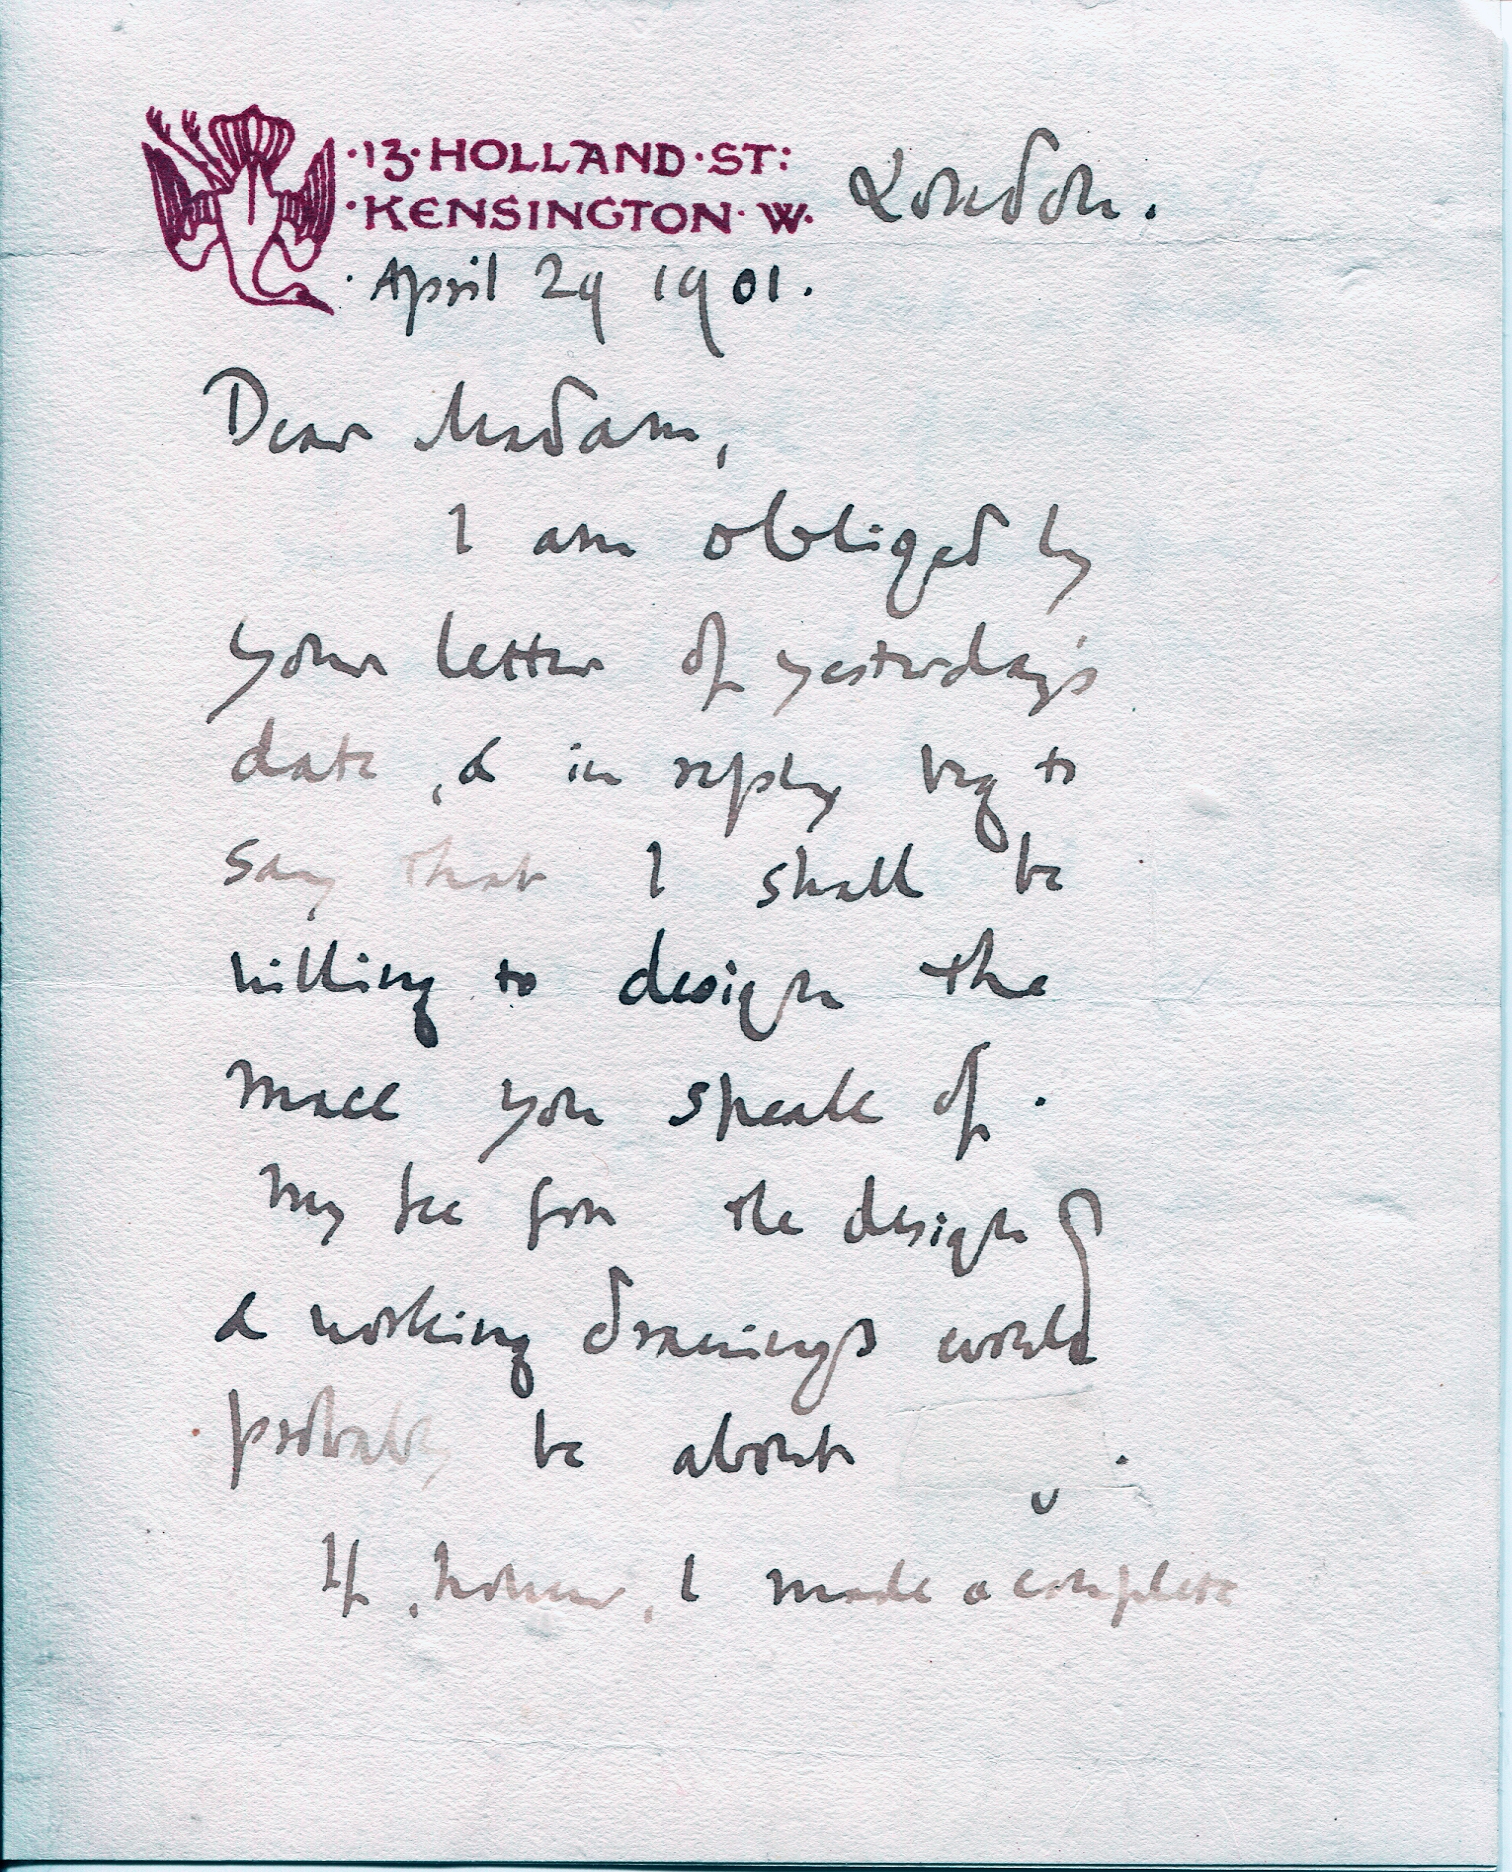 ·13·HOLLAND·ST: London.
·KENSINGTON·W.
·April 29 1901.
Dear Madam,
I am obliged by
your letter of yesterday's
date, & in reply beg to
say that I shall be
willing to design the
mace you speak of.
My fee for the design
& working drawings would
probably be about .
If, however, I made a complete